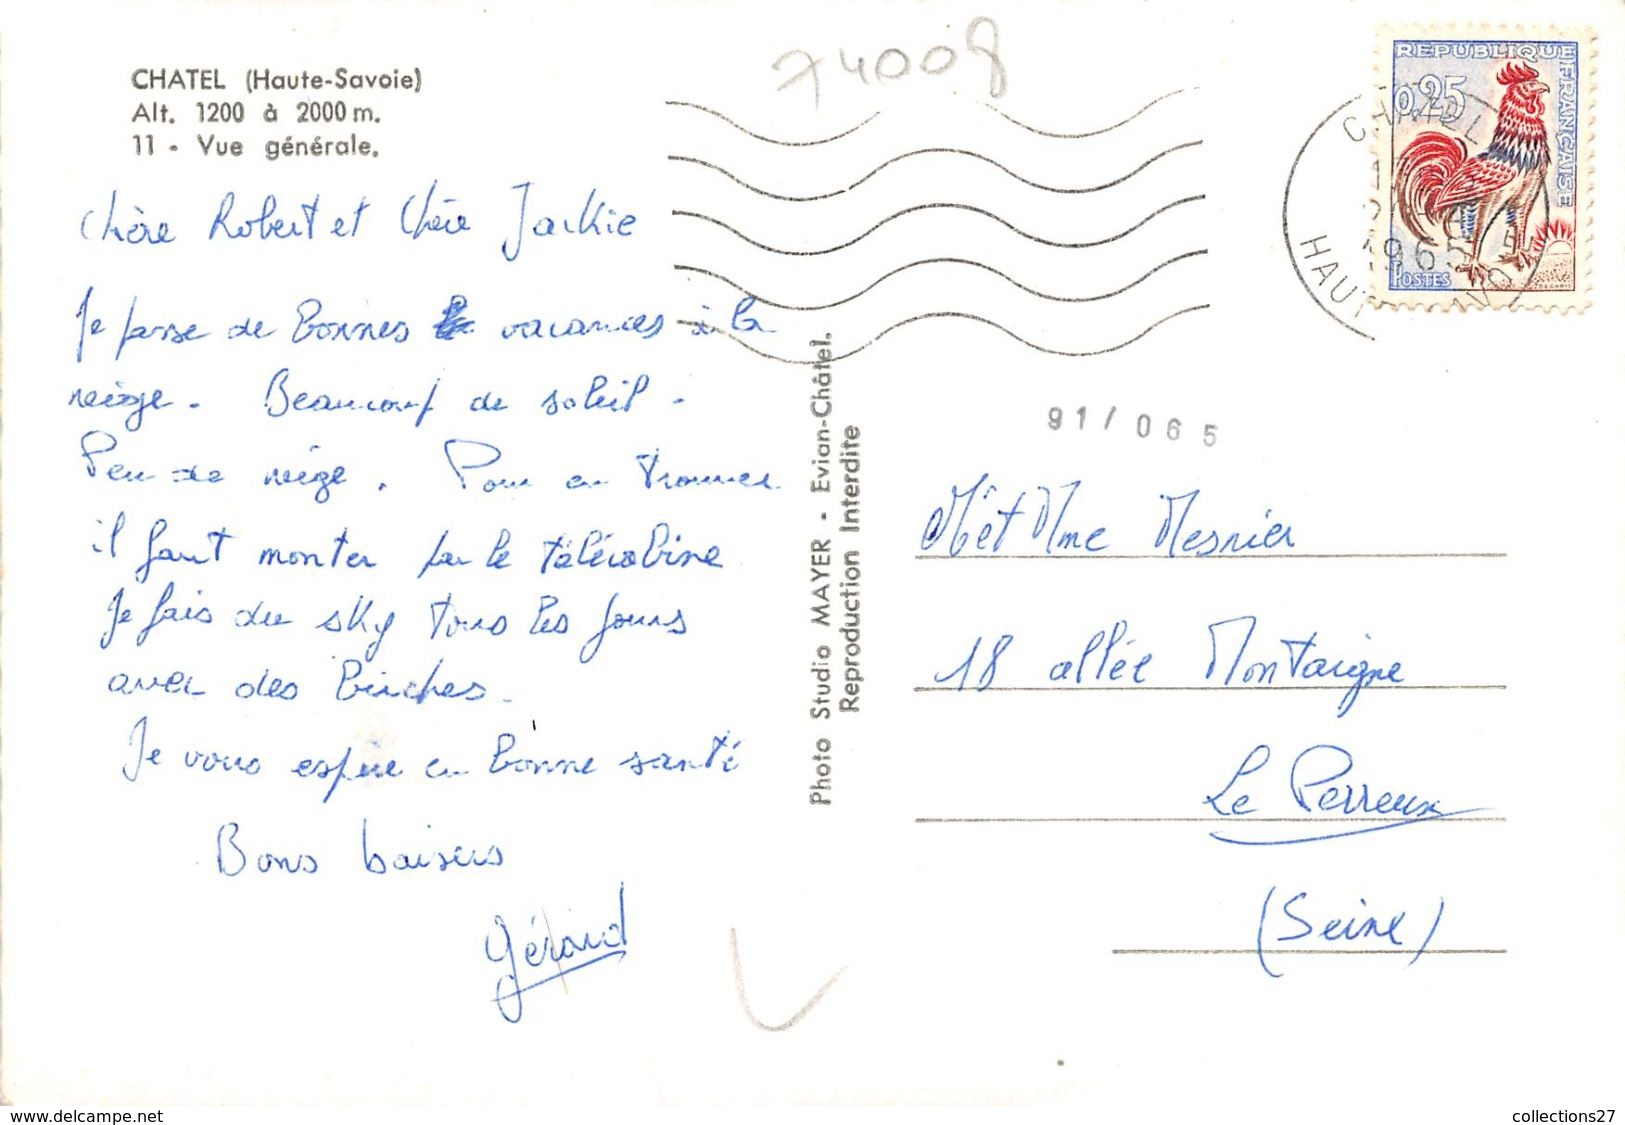 CHATEL (Haute-Savoie)
Alt. 1200 à 2000 m.
11 - Vue générale.
74008
REPUBLIQUE FRANÇAISE
0,25
POSTES
CHATEL
1965
HAUTE SAVOIE
Chère Robert et Chère Jackie
Je passe de bonnes vacances à la
neige. Beaucoup de soleil.
Peu de neige. Pour en trouver
il faut monter par le télécabine
Je fais du sky tous les jours
avec des biches.
Je vous espère en bonne santé
Bons baisers
Gérard
Photo Studio MAYER - Evian-Châtel.
Reproduction Interdite
91/065
M et Mme Mesnier
18 allée Montaigne
Le Perreux
(Seine)
www.delcampe.net
collections27